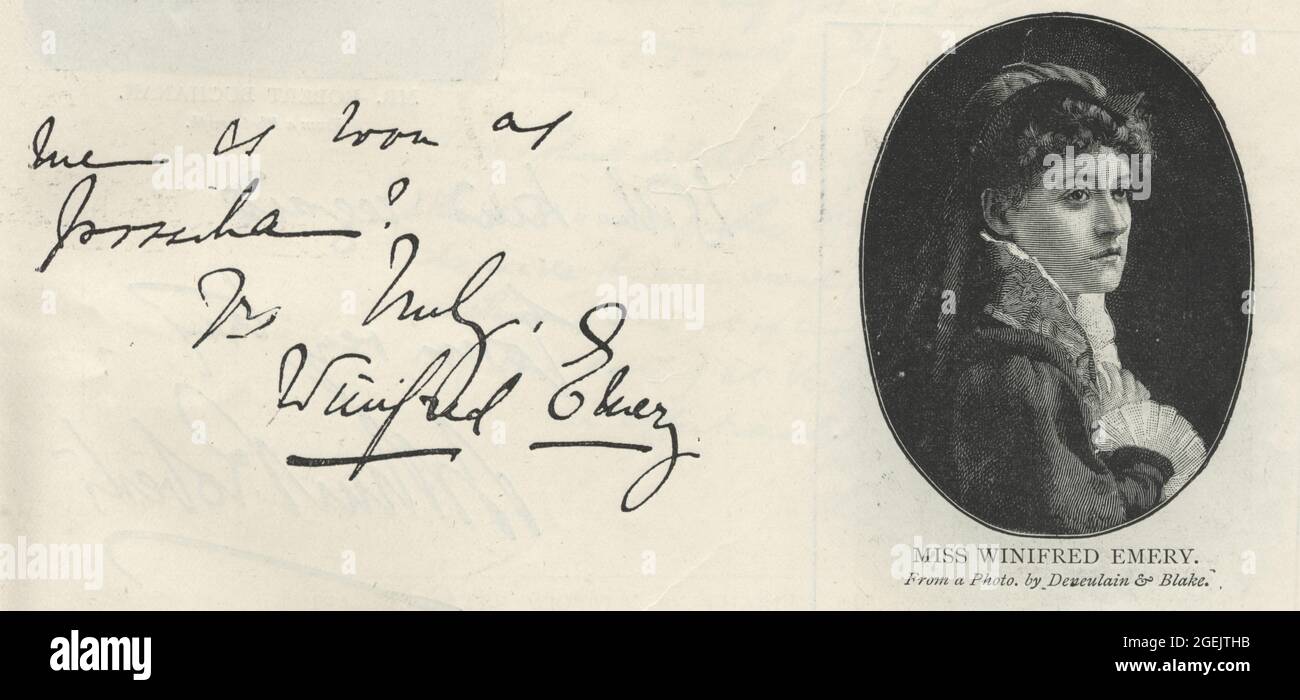 me as soon as
possible?
Yrs truly,
Winifred Emery
MISS WINIFRED EMERY.
From a Photo. by Deneulain & Blake.
alamy
Image ID: 2GEJTHB
www.alamy.com